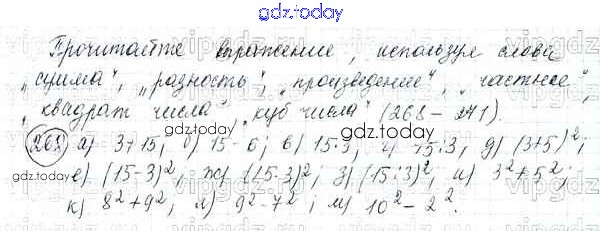 gdz.today
Прочитайте выражение, используя слова
„сумма“, „разность“, „произведение“, „частное“,
„квадрат числа“, „куб числа“ (268 – 271).
268 а) 3+15; б) 15-6; в) 15·3; г) 15:3; д) (3+5)²;
е) (15-3)²; ж) (15·3)²; з) (15:3)²; и) 3²+5²;
к) 8²+9²; л) 9²-7²; м) 10²-2².
gdz.today